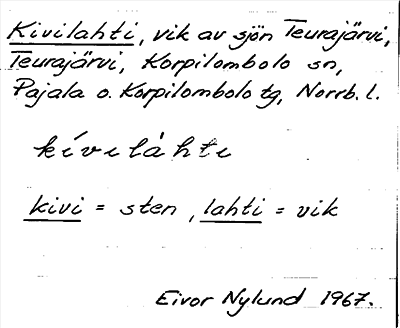 Kivilahti, vik av sjön Teurajärvi,
Teurajärvi, Korpilombolo sn,
Pajala o. Korpilombolo tg, Norrb. l.
kívilàhti
kivi = sten, lahti = vik
Eivor Nylund 1967.